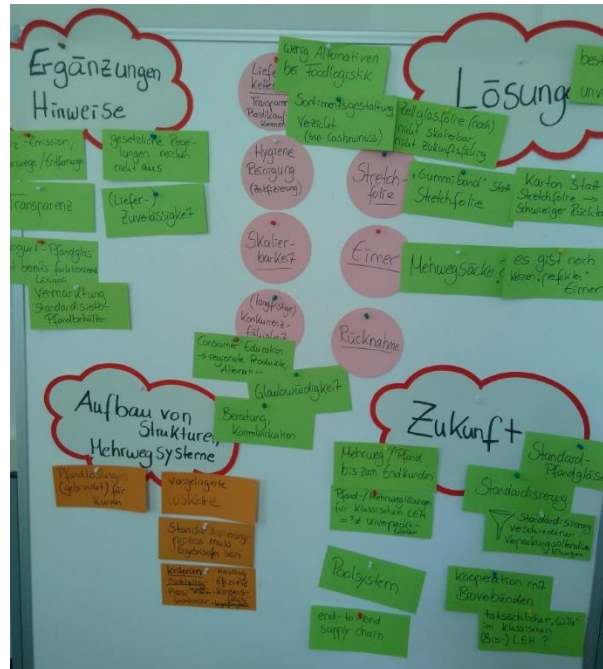 Ergänzungen
Hinweise
-Emission,
/Entfernung
gesetzliche Rege-
lungen reichen
nicht aus
Transparenz
(Liefer-)
Zuverlässigkeit
-Pfandglas
bereits
Vermarktung
Standardisierter
Pfandbehälter
Liefer
ketten
Transparenz
wenig Alternativen
bei Foodlogistik
Sortimentsgestaltung
Verzicht
(bsp. Cashewnuss)
Hygiene
Reinigung
(Zertifizierung)
Skalier-
barkeit
(langfristige)
Konkurrenz-
fähigkeit
Consumer Education
→ regionale Produkte,
Glaubwürdigkeit
Beratung,
Kommunikation
Lösung
best
unv
Zellglasfolie (noch)
nicht skalierbar
nicht zukunftsfähig
Stretch-
folie
"Gummiband" statt
Stretchfolie
Karton statt
Stretchfolie →
Schwieriger
Eimer
Mehrwegsäcke
es gibt noch
keinen "perfekten"
Eimer
Rücknahme
Aufbau von
Strukturen,
Mehrwegsysteme
Pfandlösungen
(gebrandet) für
Kunden
vorgelagerte
Standardisierungs-
prozess muss
sein
Kriterien
Zukunft
Mehrweg/Pfand
bis zum Endkunden
Pfand-/Mehrweglösungen
für klassischen LEH
=?≠ unverpackt-
Poolsystem
end-to-end
supply chain
Standard-
Pfandgläser
Standardisierung
Standardisierung
verschiedener
Kooperation mit
Bioverbänden
tatsächlicher "Wille"
im klassischen
(Bio-) LEH ?